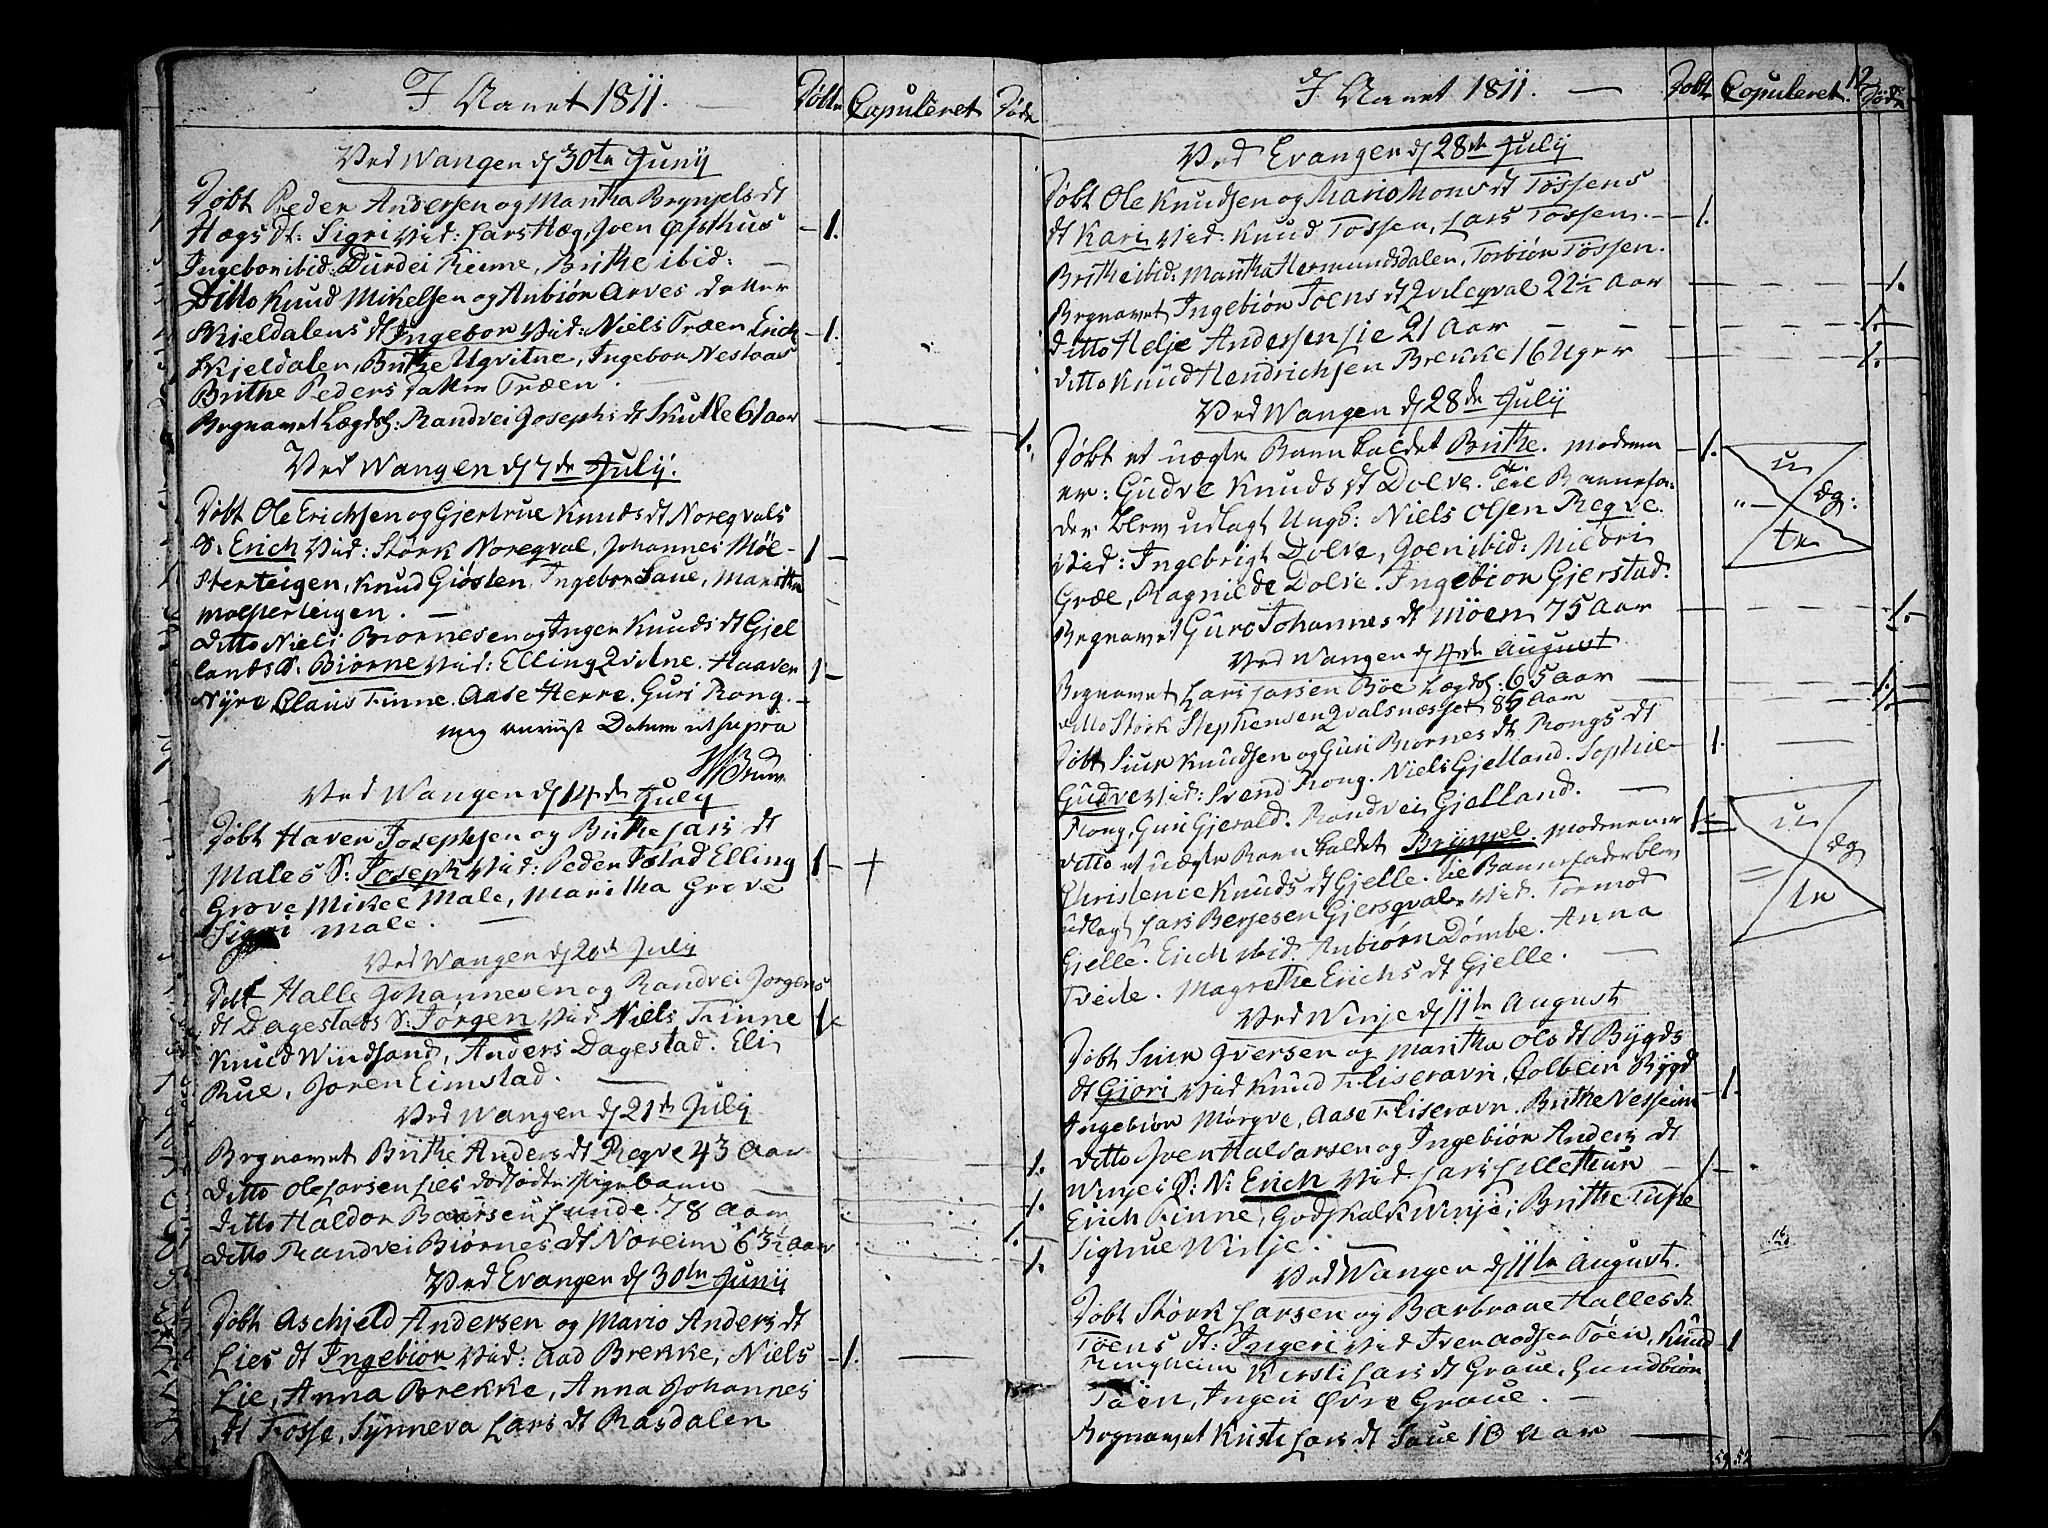 I Aaret 1811. Døbte Copuleret Døde
Ved Wangen d 30te Junij
Døbt Peder Andersen og Maritha Brynjels dt
Hægs dt: Sigri Vid: Lars Hæg, Joen Øfsthus 1.
Ingebor ibid: Durdei Reime, Brithe ibid:
Ditto Knud Mikelsen og Anbiør Arves datter
Kieldalens dt Ingebor Vid: Niels Træen Erich 1.
Kjeldalen, Brithe Ugvitne, Ingebor Nestaas
Brithe Peders datter Træen.
Begravet Lægdsl: Randvei Josephs dt Skulle 61 aar 1.
Ved Wangen d 7de Julij.
Døbt Ole Erichsen og Gjertrue Knuds dt Noreqvals
S. Erich Vid: Størk Noreqval, Johannes Møl- 1
sterteigen, Knud Giøsten, Ingebor Saue, Maritha
Molsterteigen.
Ditto Niels Biørnesen og Inger Knuds dt Gjel
lands S. Biørne Vid: Elling Qvitne. Haaver 1
Nyre, Claus Finne. Aase Herre. Guri Rong.
Datum ut supra
Ved Wangen d 14de July
Døbt Haver Josephsen og Brithe Lars dt
Males S: Joseph Vid: Peder Istad Elling 1 +
Grove Mikel Male, Maritha Grove
Sigri Male.
Ved Wangen d 20de July
Døbt Halle Johannesen og Randvei Jørgens
dt Dagestads S: Jørgen Vid Niels Finne 1
Knud Windsand, Anders Dagestad. Eli
Rue, Joren Eimstad.
Ved Wangen d 21de July
Begravet Brithe Anders dt Reqve 43 Aar 1.
Ditto Ole Larsen Lies dødfødte Pigebarn 1.
Ditto Haldor Baarsen Lunde. 78 Aar 1.
Ditto Randvei Biørnes dt Noreim 63½ Aar 1.
Ved Evangen d 30te Junij
Døbt Aschjeld Andersen og Mario Anders dt
Lies dt Ingebiør Vid: Aad Brekke, Niels 1.
Lie, Anna Brekke, Anna Johannes
dt Fosse, Synneva Lars dt Rasdalen
I Aaret 1811. Døbt Copuleret. 12 Døde
Ved Evangen d 28de July
Døbt Ole Knudsen og Mario Mons dt Tøssens
dt Kari Vid: Knud Tøssen, Lars Tøssen. 1.
Brithe ibid: Maritha Hermundsdalen, Torbiør Tøssen.
Begravet Ingebiør Joens dt Qvileqval 22½ Aar 1.
Ditto Helje Andersen Lie 21 Aar 1.
Ditto Knud Hendrichsen Brekke 16 Uger 1.
Ved Wangen d 28de July
Døbt et uægte Barn kaldet Brithe. Moderen 1.
er: Gudve Knuds dt Dolve. Til Barnefa-
der blev udlagt Ungk: Niels Olsen Reqve.
Vid: Ingebrigt Dolve, Joen ibid: Mildri
Græe, Ragnilde Dolve. Ingebior Gjerstad.
u
æg:
te
Begravet Guro Johannes dt Møen 75 Aar 1.
Ved Wangen d 4de August
Begravet Lars Larsen Bøe Lægdsl: 65 Aar 1.
Ditto Størk Stephensen Qvalsnesset 85 Aar 1.
Døbt Siur Knudsen og Guri Biørnes dt Rongs dt 1.
Gudve Vid: Svend Rong. Niels Gjelland. Sophie
Rong, Guri Gjerald. Randvei Gjelland.
Ditto et uægte Barn kaldet Brynjel. Moderen er 1
Christence Knuds dt Gjelle. Til Barnefader blev
udlagt Lars Berjesen Gjersqval. Vid. Tormod
Gjelle. Erich ibid. Anbiørn Dømbe. Anna
Tveite. Magrethe Erichs dt Gjelle.
u
æg
te
Ved Winje d 11te August
Døbt Siur Iversen og Maritha Ols dt Bygds
dt Gjøri Vid Knud Fliseravn, Colbein Bygd 1.
Ingebiør Mørqve, Aase Fliseravn. Brithe Nesseim
Ditto Joen Haldorsen og Ingebiør Anders dt
Winjes S: N: Erich Vid: Lars Lillethun 1
Erich Rinne, Godskalk Winje, Brithe Tufte
Sigtrue Winje.
Ved Wangen d 11te August.
Døbt Størk Larsen og Barbroe Halles dt
Tøens dt: Ingeri Vid Iver Aadsen Tøen, Knud 1
Ringheim Kirsti Lars dt Graue, Gundbiør
Tøen, Ingeri Øvre Graue.
Begravet Kristi Lars dt Saue 18 Aar 1.